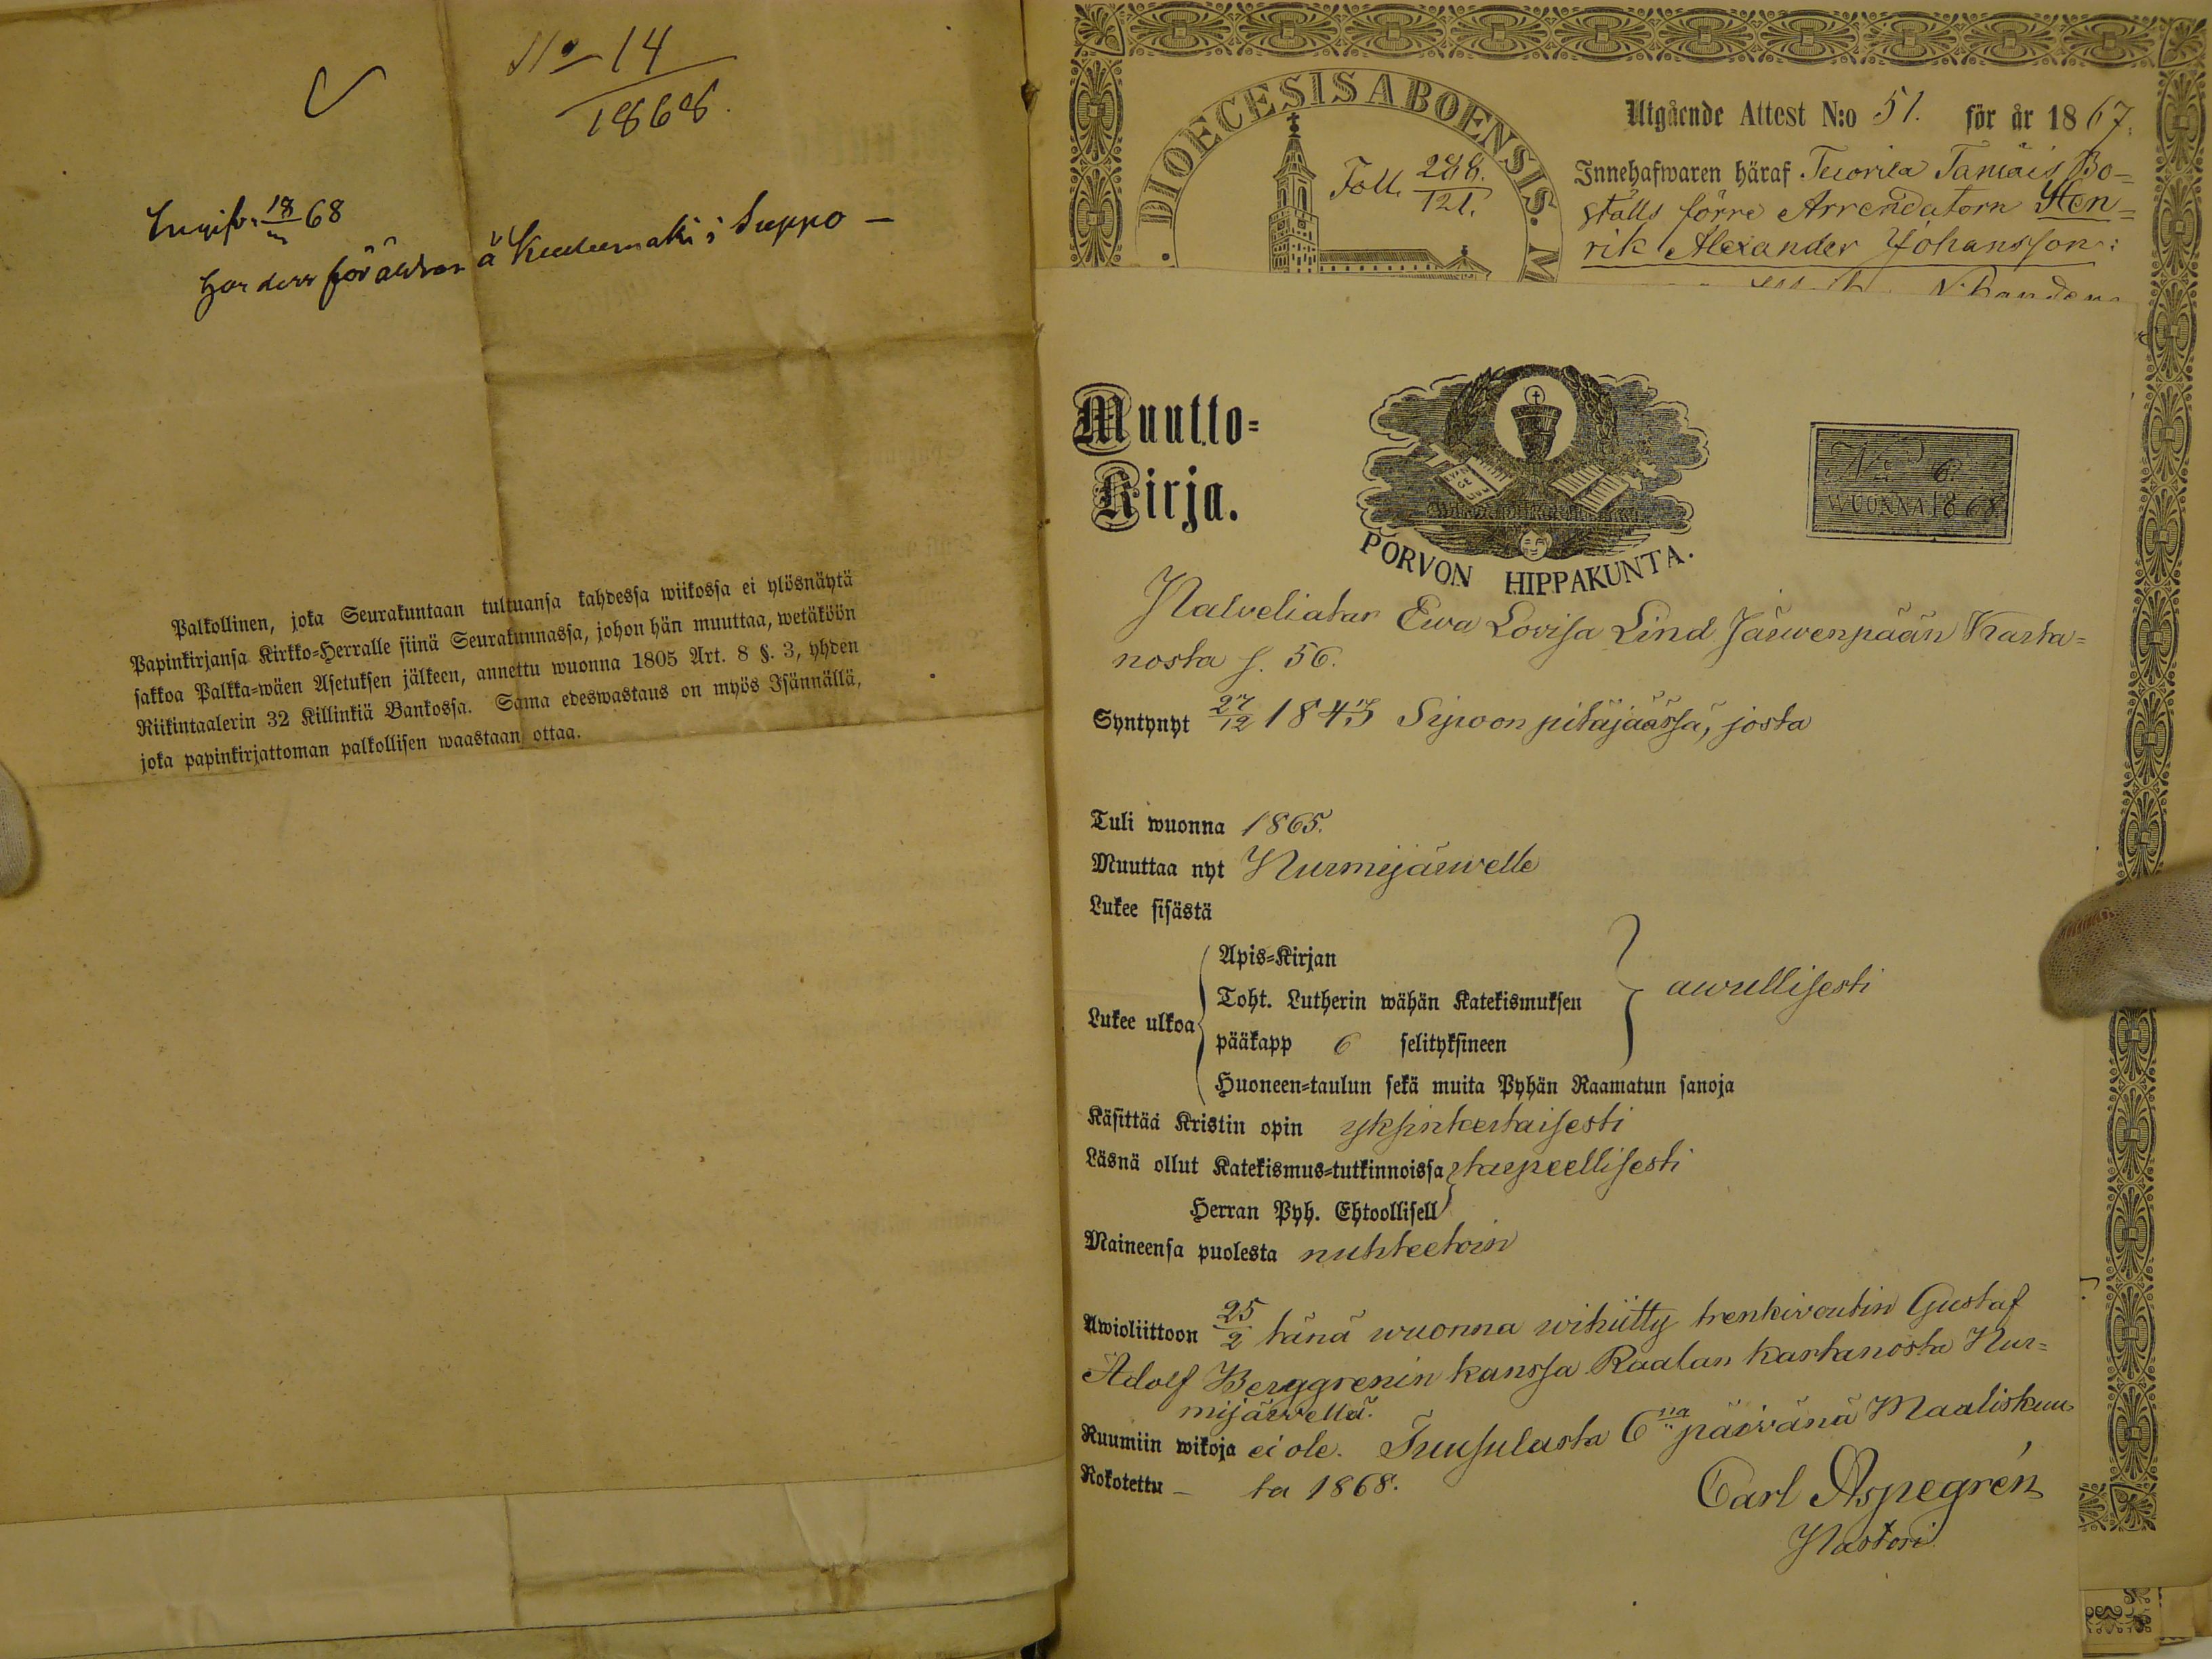 No 14
1868.
18 68
Har dess föräldrar å i Suppo —
Palkollinen, joka Seurakuntaan tultuansa kahdessa wiikossa ei ylösnäytä
Papinkirjansa Kirkko-Herralle siinä Seurakunnassa, johon hän muuttaa, wetäköön
sakkoa Palkka-wäen Asetuksen jälkeen, annettu wuonna 1805 Art. 8 §. 3, yhden
Riikintaalerin 32 Killinkiä Bankossa. Sama edeswastaus on myös Isännällä,
joka papinkirjattoman palkollisen waastaan ottaa.
DIOECESIS ABOENSIS. M
Foll. 288.
121.
Utgående Attest N:o 51. för år 1867.
Innehafwaren häraf Bo-
ställs förre Arrendatorn Hen-
rik Alexander Johansson:
Muutto-
Kirja.
EVAN
GE
LIUM
PORVON HIPPAKUNTA.
No 6.
WUONNA 1868.
Palveliatar Ewa Lovisa Lind Järwenpään Karta-
nosta s. 56.
Syntynyt 27/12 1843 Sipoon pitäjäässä, josta
Tuli wuonna 1865.
Muuttaa nyt Nurmijärwelle
Lukee sisästä
Lukee ulkoa
Apis-Kirjan
Toht. Lutherin wähän Katekismuksen
pääkapp 6 selityksineen
Huoneen-taulun sekä muita Pyhän Raamatun sanoja
awullisesti
Käsittää Kristin opin yksinkertaisesti
Läsnä ollut Katekismus-tutkinnoissa tarpeellisesti
Herran Pyh. Ehtoollisell
Maineensa puolesta nuhteetoin
Awioliittoon 25/2 tänä wuonna wihitty trenkivoutin Gustaf
Adolf Berggrenin kanssa Raalan kartanosta Nur-
mijärwellä.
Ruumiin wikoja ei ole. Tuusulasta 6na päivänä Maaliskuu-
Rokotettu – ta 1868.
Carl Aspegrén
Pastori